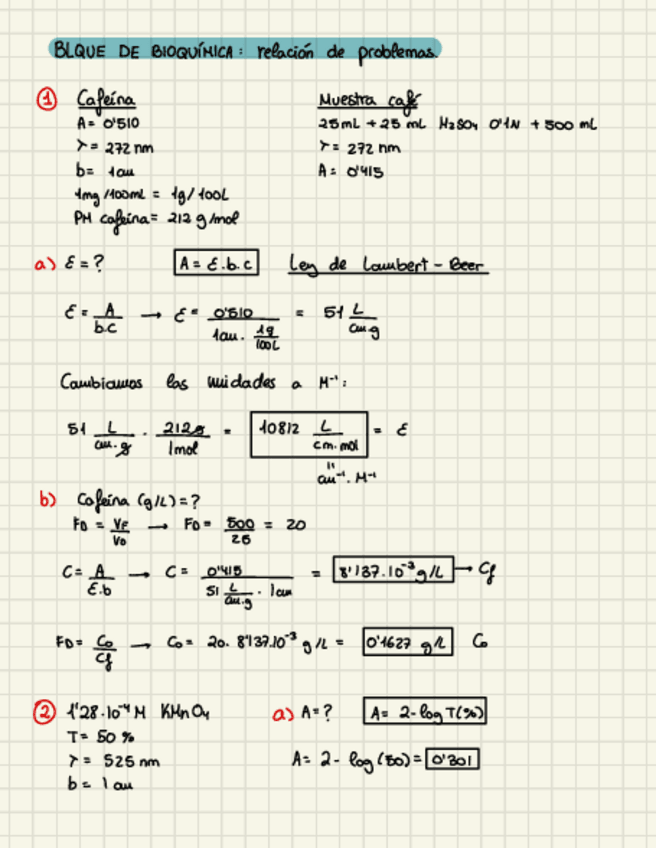 BLQUE DE BIOQUÍMICA: relación de problemas.
① Cafeína
A= 0'510
λ= 272 nm
b= 1cm
1mg/100mL = 1g/100L
PM cafeína= 212 g/mol
Muestra café
25mL + 25 mL H₂SO₄ 0'1N + 500 mL
λ= 272 nm
A= 0'415
a) ε=? A= ε.b.c Ley de Lambert-Beer
ε= A/b.c → ε= 0'510/(1cm. 1g/100L) = 51 L/cm.g
Cambiamos las unidades a M⁻¹:
51 L/cm.g . 212g/1mol = 10812 L/cm.mol = ε
"
cm⁻¹. M⁻¹
b) Cafeína (g/L)=?
FD = VF/V0 → FD= 500/25 = 20
C= A/ε.b → C= 0'415/(51 L/cm.g . 1cm) = 8'137.10⁻³ g/L → Cf
FD= C0/Cf → C0= 20. 8'137.10⁻³ g/L = 0'1627 g/L C0
② 1'28.10⁻⁴ M KMnO₄
T= 50 %
λ= 525 nm
b= 1 cm
a) A=? A= 2-log T(%)
A= 2- log (50) = 0'301